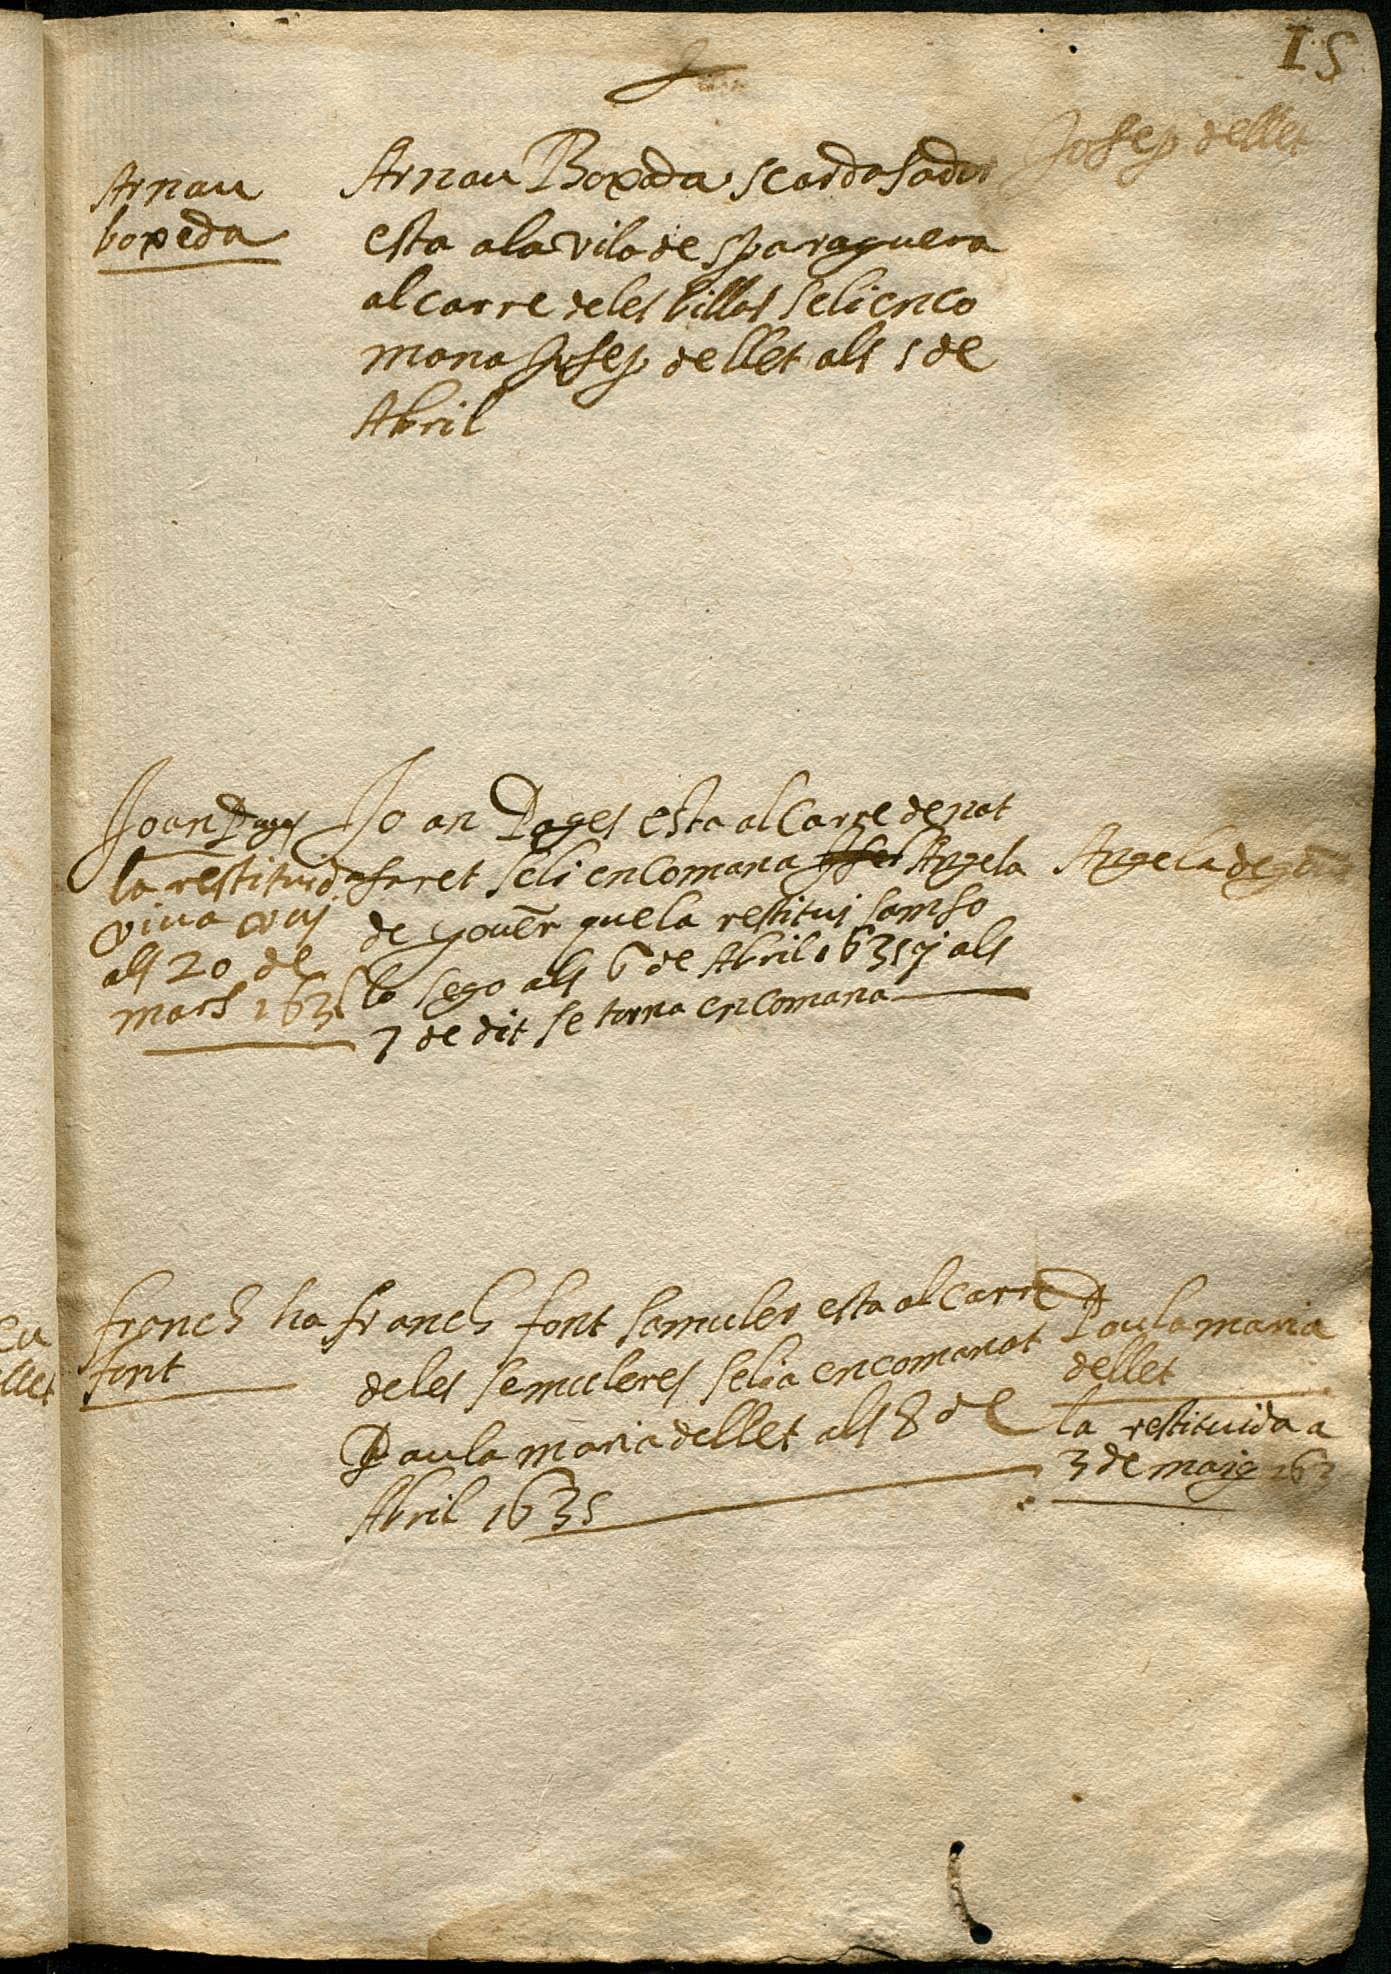 15
Josep de llet
Arnau
boxeda
Arnau Boxeda scardasador
esta a la vila de sparaguera
al carre de les billes seli enco
mana Josep de llet als 5 de
Abril
Joan Pages
la restituida
viva vuj
als 20 de
mars 163
Joan Pages esta al Carre de nat
faret seli encomana Angela
de Janer que la restitui samso
lo sego als 6 de Abril 1635 y als
7 de dit se torna encomana
Angela de
franch
font
ha franch font samuler esta al carre
de les semuleres selia encomanat
Paula maria de llet als 8 de
Abril 1635
Paula maria
de llet
la restituida a
3 de maig 163